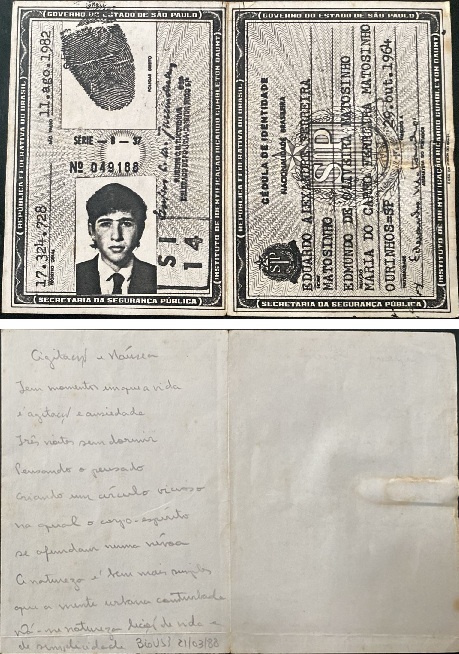 GOVERNO DO ESTADO DE SÃO PAULO
REPÚBLICA FEDERATIVA DO BRASIL
INSTITUTO DE IDENTIFICAÇÃO RICARDO GUMBLETON DAUNT
SECRETARIA DA SEGURANÇA PÚBLICA
17.324.728
SÃO PAULO 11.ago.1982
POLEGAR DIREITO
SÉRIE
Nº 049188
SI
14
GOVERNO DO ESTADO DE SÃO PAULO
REPÚBLICA FEDERATIVA DO BRASIL
INSTITUTO DE IDENTIFICAÇÃO RICARDO GUMBLETON DAUNT
SECRETARIA DA SEGURANÇA PÚBLICA
CÉDULA DE IDENTIDADE
SP
EDUARDO ALEXANDRE FERREIRA
MATOSINHO
EDMUNDO DE OLIVEIRA MATOSINHO
MARIA DO CARMO FERREIRA MATOSINHO
OURINHOS-SP 29.out.1964
Agitação e Náusea
Tem momentos em que a vida
é agitação e ansiedade
Três noites sem dormir
Pensando o pensado
Criando um círculo vicioso
na qual o corpo-espírito
se afundam numa névoa
A natureza é bem mais simples
que a mente urbana conturbada
na natureza lição de vida e
de simplicidade 21/03/88